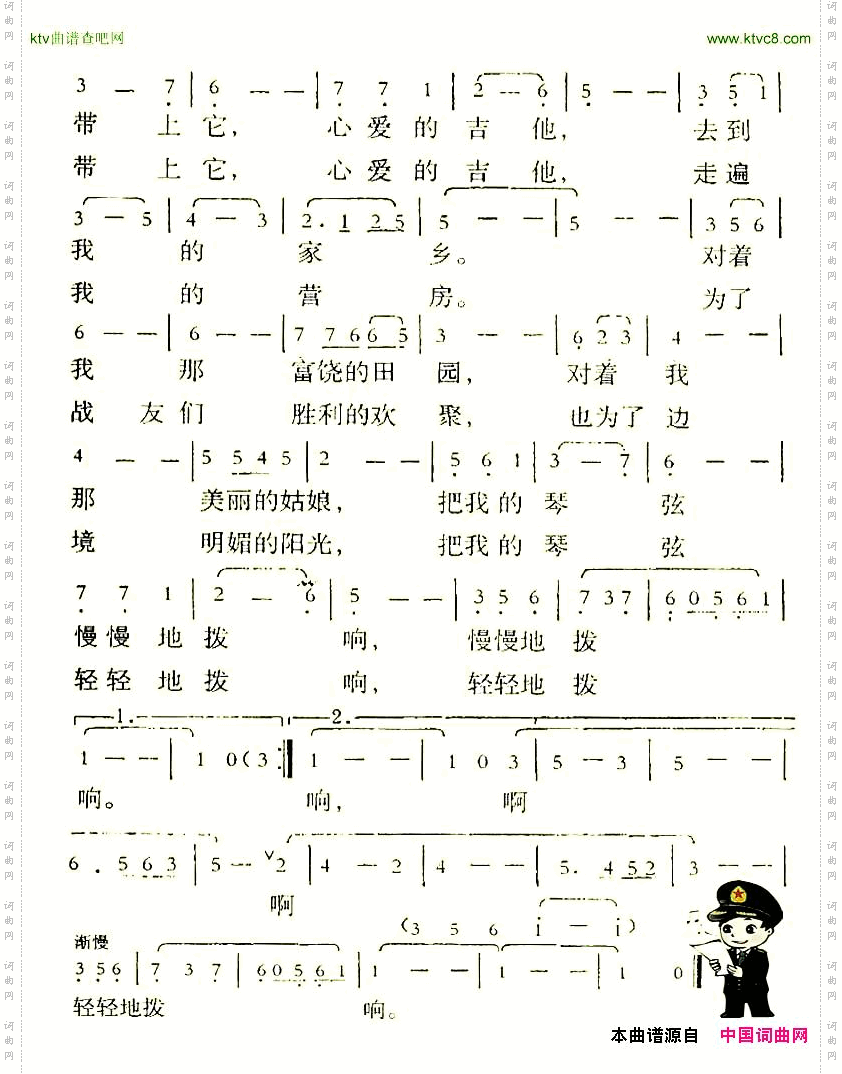 ktv曲谱查吧网 www.ktvc8.com
3 — 7 | 6 — — | 7 7 1 | 2 — 6 | 5 — — | 3 5 1 |
带 上它， 心爱的吉 他， 去到
带 上它， 心爱的吉 他， 走遍
3 — 5 | 4 — 3 | 2. 1 2 5 | 5 — — | 5 — — | 3 5 6 |
我 的 家 乡。 对着
我 的 营 房。 为了
6 — — | 6 — — | 7 7 6 6 5 | 3 — — | 6 2 3 | 4 — — |
我 那 富饶的田 园， 对着 我
战 友们 胜利的欢 聚， 也为了 边
4 — — | 5 5 4 5 | 2 — — | 5 6 1 | 3 — 7 | 6 — — |
那 美丽的姑娘， 把我的 琴 弦
境 明媚的阳光， 把我的 琴 弦
7 7 1 | 2 — 6 | 5 — — | 3 5 6 | 7 3 7 | 6 0 5 6 1 |
慢慢 地 拨 响， 慢慢地 拨
轻轻 地 拨 响， 轻轻地 拨
1. 2.
1 — — | 1 0 (3 :‖ 1 — — | 1 0 3 | 5 — 3 | 5 — — |
响。 响， 啊
6 . 5 6 3 | 5 — ∨2 | 4 — 2 | 4 — — | 5. 4 5 2 | 3 — — |
啊
(3 5 6 i — i)
渐慢
3 5 6 | 7 3 7 | 6 0 5 6 1 | 1 — — | 1 — — | 1 0 ‖
轻轻地拨 响。
本曲谱源自 中国词曲网